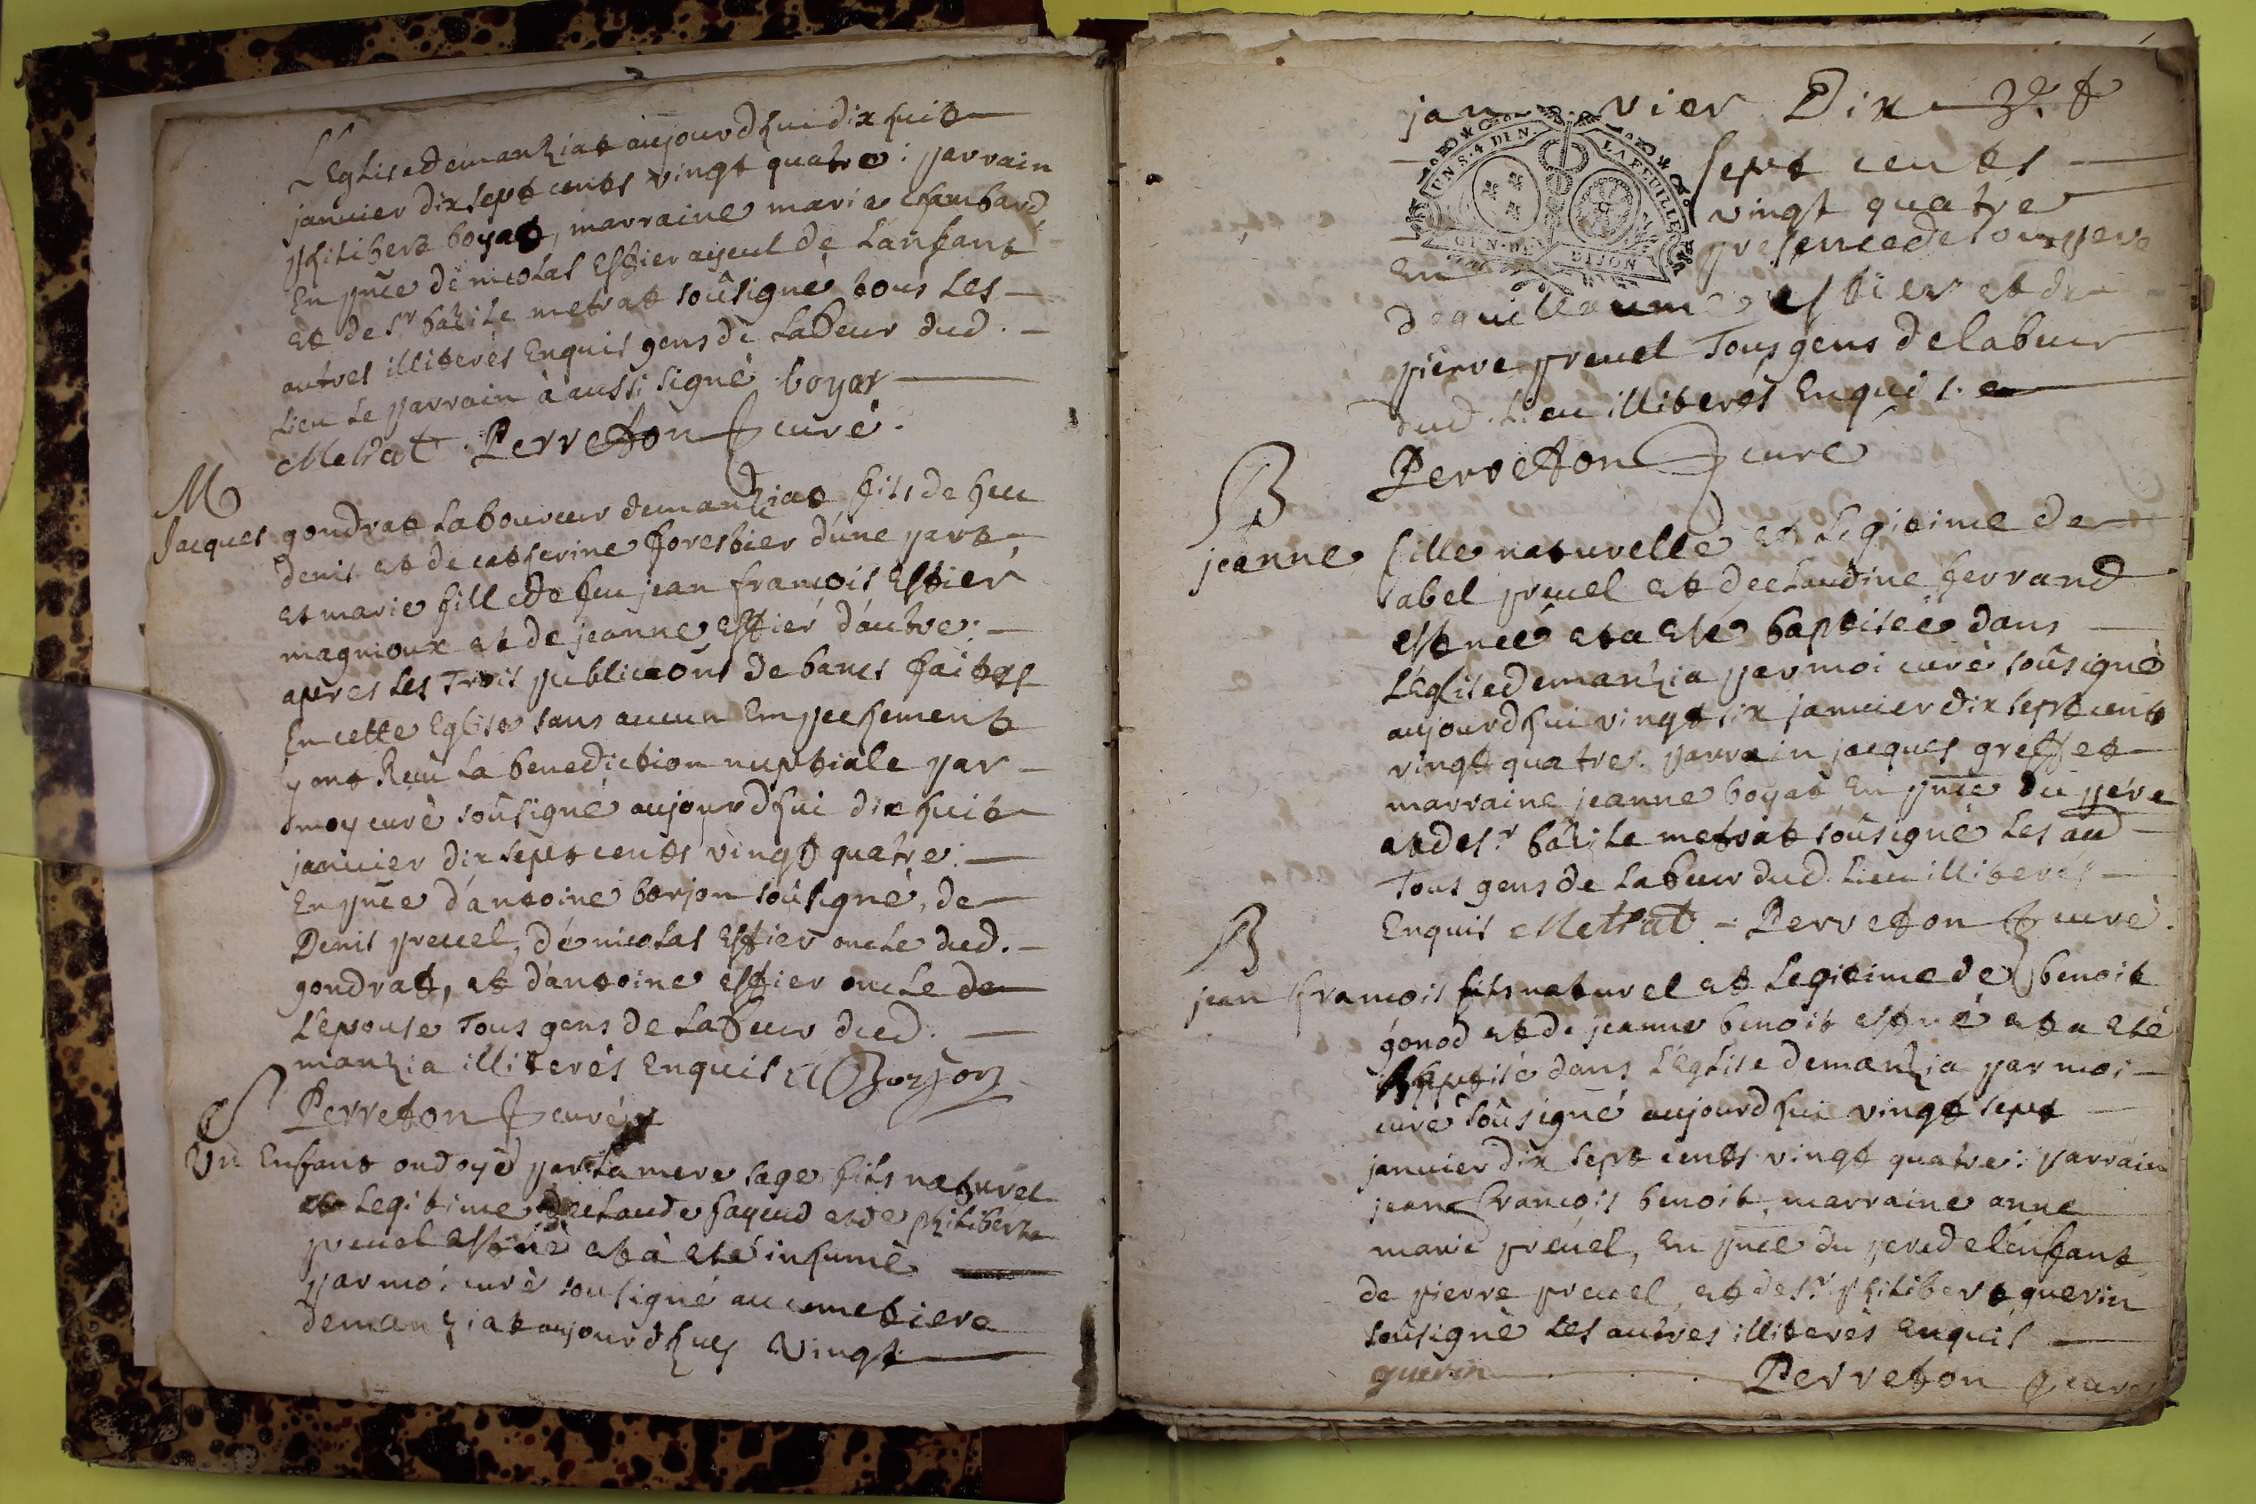 L'Eglise demanziat aujourdhui dix huit
januier dix sept cents vingt quatre : parrain
philibert boyat, marraine marie chambard
En pnce de nicolas Estier ayeul de L'anfant
et de sr bazile metrat soûsigné tous Les
autres illiterés Enquis gens de Labeur dud.
Lieu Le parrain à aussi signé boyat
Metrat Perreton curé
M
Jacques gondrat Laboureur demanziat fils de feu
denis et de catherine forestier d'une part
et marie fille de feu jean françois Estier
magnioux et de jeanne Estier d'autre
apres Les Trois publicaôns de bancs faites
En cette Eglise sans aucun Empechement
ont Reçu La benediction nuptiale par
moy curé soûsigné aujourdhui dix huit
januier dix sept cents vingt quatre
En pnce d'antoine borjon soûsigné, de
Denis preuel, de nicolas Estier oncle dud.
gondrat, et d'antoine estier oncle de
L'epouse Tous gens de Labeur dud.
manzia illiterés Enquis Borjon
Perreton curé
S
Un Enfant ondoyé par La mere sage fils naturel
et Legitime de claude fayend et de philiberte
preuel est né et à eté inhumé
par moi curé sousigné au cimetiere
demanziat aujourdhuy Vingt
januier Dix
sept cents
vingt quatre
En presence de son pere
de guillaume estier et de
pierre preuel Tous gens de labeur
dud. Lieu illiterés Enquis
Perreton curé
UN S. 4 DEN. LA FEUILLE
GEN. DE DIJON
B
jeanne fille naturelle et Legitime de
abel preuel et de claudine ferrand
est née et a eté baptisée dans
L'Eglise demanzia par moi curé soûsigné
aujourdhui vingt six januier dix sept cents
vingt quatre. parrain jacques greffet
marraine jeanne boyat En pnce du pere
et de sr bazile metrat soûsigné Les au
Tous gens de Labeur dud. Lieu illiterés
Enquis Metrat - Perreton curé
B
jean françois fils naturel et Legitime de benoit
gonod et de jeanne benoit est né et a eté
Baptisé dans L'Eglise demanzia par moi
curé soûsigné aujourdhui vingt sept
januier dix sept cents vingt quatre : parrain
jean françois benoit, marraine anne
marie preuel, En pnce du pere de l'enfant
de pierre preuel, et de sr philibert guerin
soûsigné Les autres illiterés Enquis
guerin Perreton curé